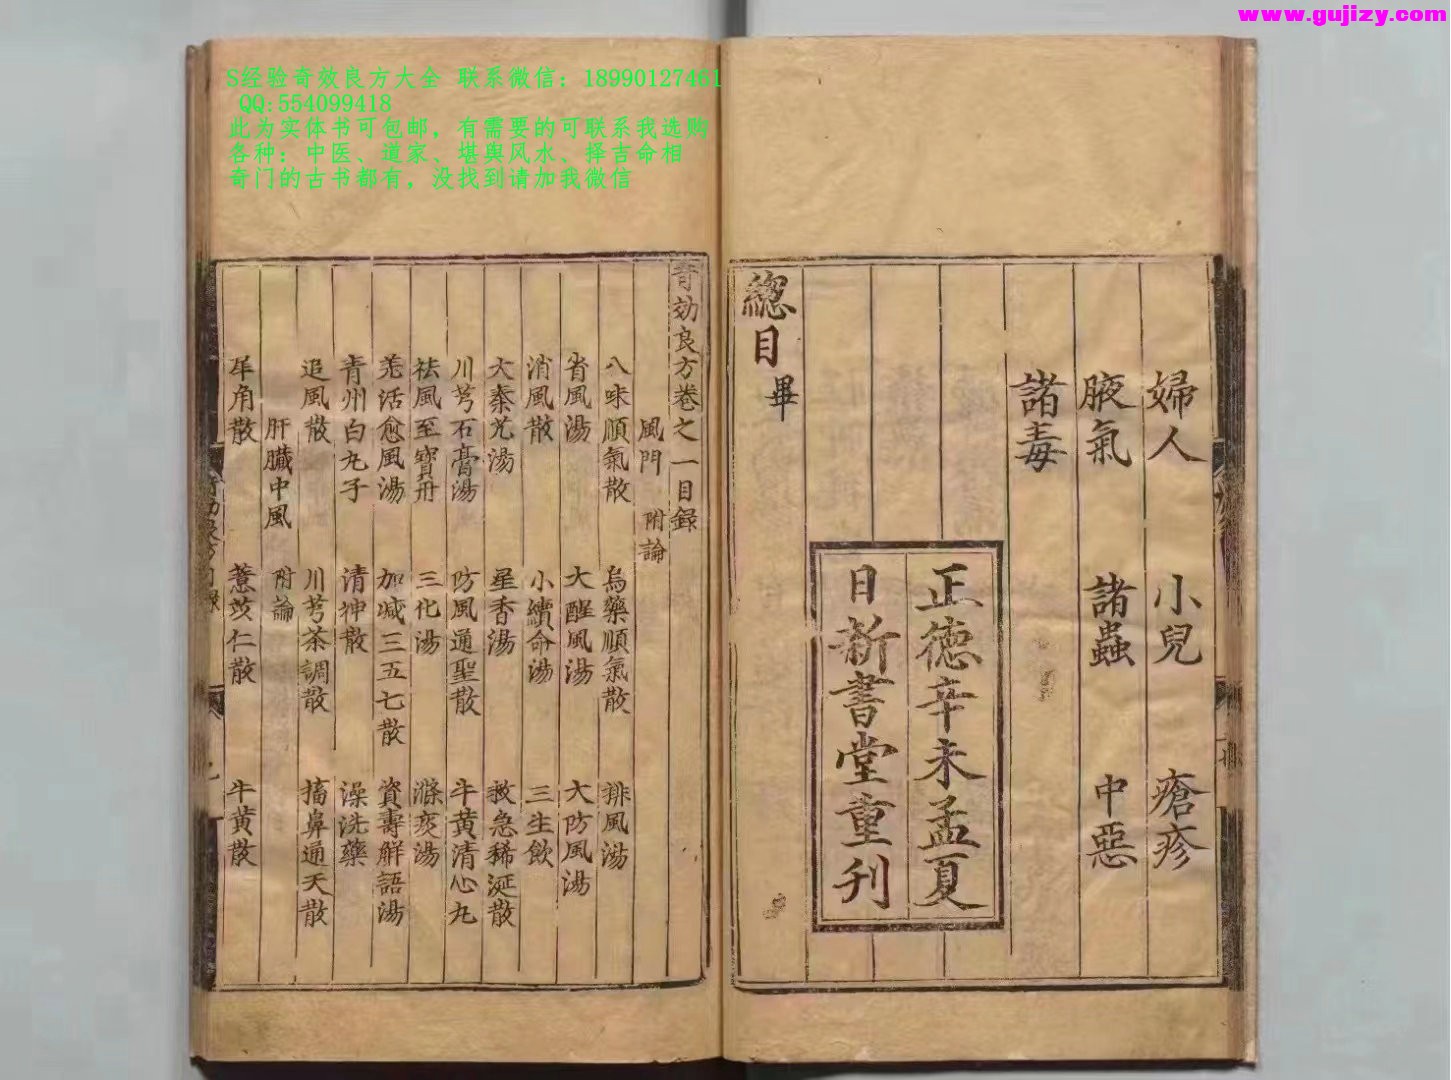 www.gujizy.com
S经验奇效良方大全 联系微信：18990127461
QQ:554099418
此为实体书可包邮，有需要的可联系我选购
各种：中医、道家、堪舆风水、择吉命相
奇门的古书都有，没找到请加我微信
婦人 小兒 瘡疹
腋氣 諸蟲 中惡
諸毒
正德辛未孟夏
日新書堂重刊
總目畢
奇効良方卷之一目録
風門 附論
八味順氣散 烏藥順氣散 排風湯
省風湯 大醒風湯 大防風湯
消風散 小續命湯 三生飲
大秦艽湯 星香湯 救急稀涎散
川芎石膏湯 防風通聖散 牛黄清心丸
祛風至寶丹 三化湯 滌痰湯
羌活愈風湯 加減三五七散 資壽解語湯
青州白丸子 清神散 澡洗藥
追風散 川芎茶調散 搐鼻通天散
肝臟中風 附論
犀角散 薏苡仁散 牛黄散